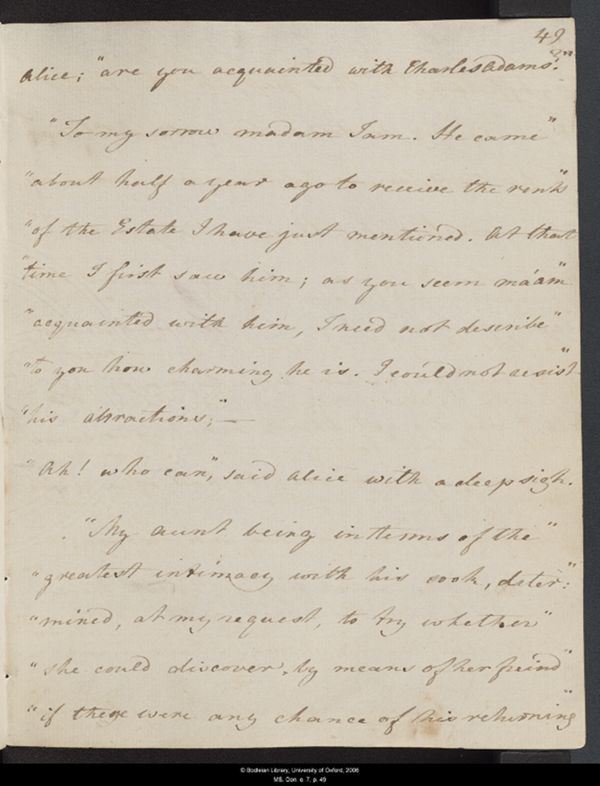 49
Alice; "are you acquainted with Charles Adams?"
"To my sorrow madam I am. He came"
"about half a year ago to receive the rents"
"of the Estate I have just mentioned. At that
"time I first saw him; as you seem ma'am"
"acquainted with him, I need not describe"
"to you how charming he is. I could not resist"
"his attractions;"—
"Ah! who can," said Alice with a deep sigh.
"My aunt being in terms of the"
"greatest intimacy with his cook, deter:"
"mined, at my request, to try whether"
"she could discover, by means of her freind"
"if there were any chance of his returning"
© Bodleian Library, University of Oxford, 2006
MS. Don. e. 7, p. 49